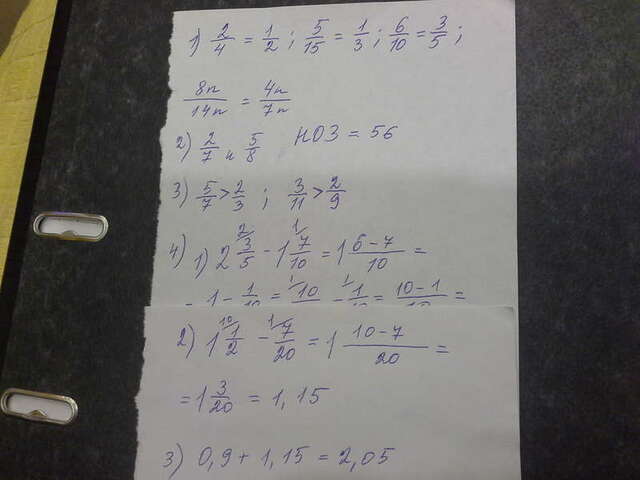 1) 2/4 = 1/2 ; 5/15 = 1/3 ; 6/10 = 3/5 ;
8n/14n = 4n/7n
2) 2/7 и 5/8 НОЗ = 56
3) 5/7 > 2/3 ; 3/11 > 2/9
4) 1) 2 3/5 - 1 7/10 = 1 6-7/10 =
= 1 - 1/10 = 10/10 - 1/10 = 10-1/10 =
2) 1 1/2 - 7/20 = 1 10-7/20 =
= 1 3/20 = 1,15
3) 0,9 + 1,15 = 2,05